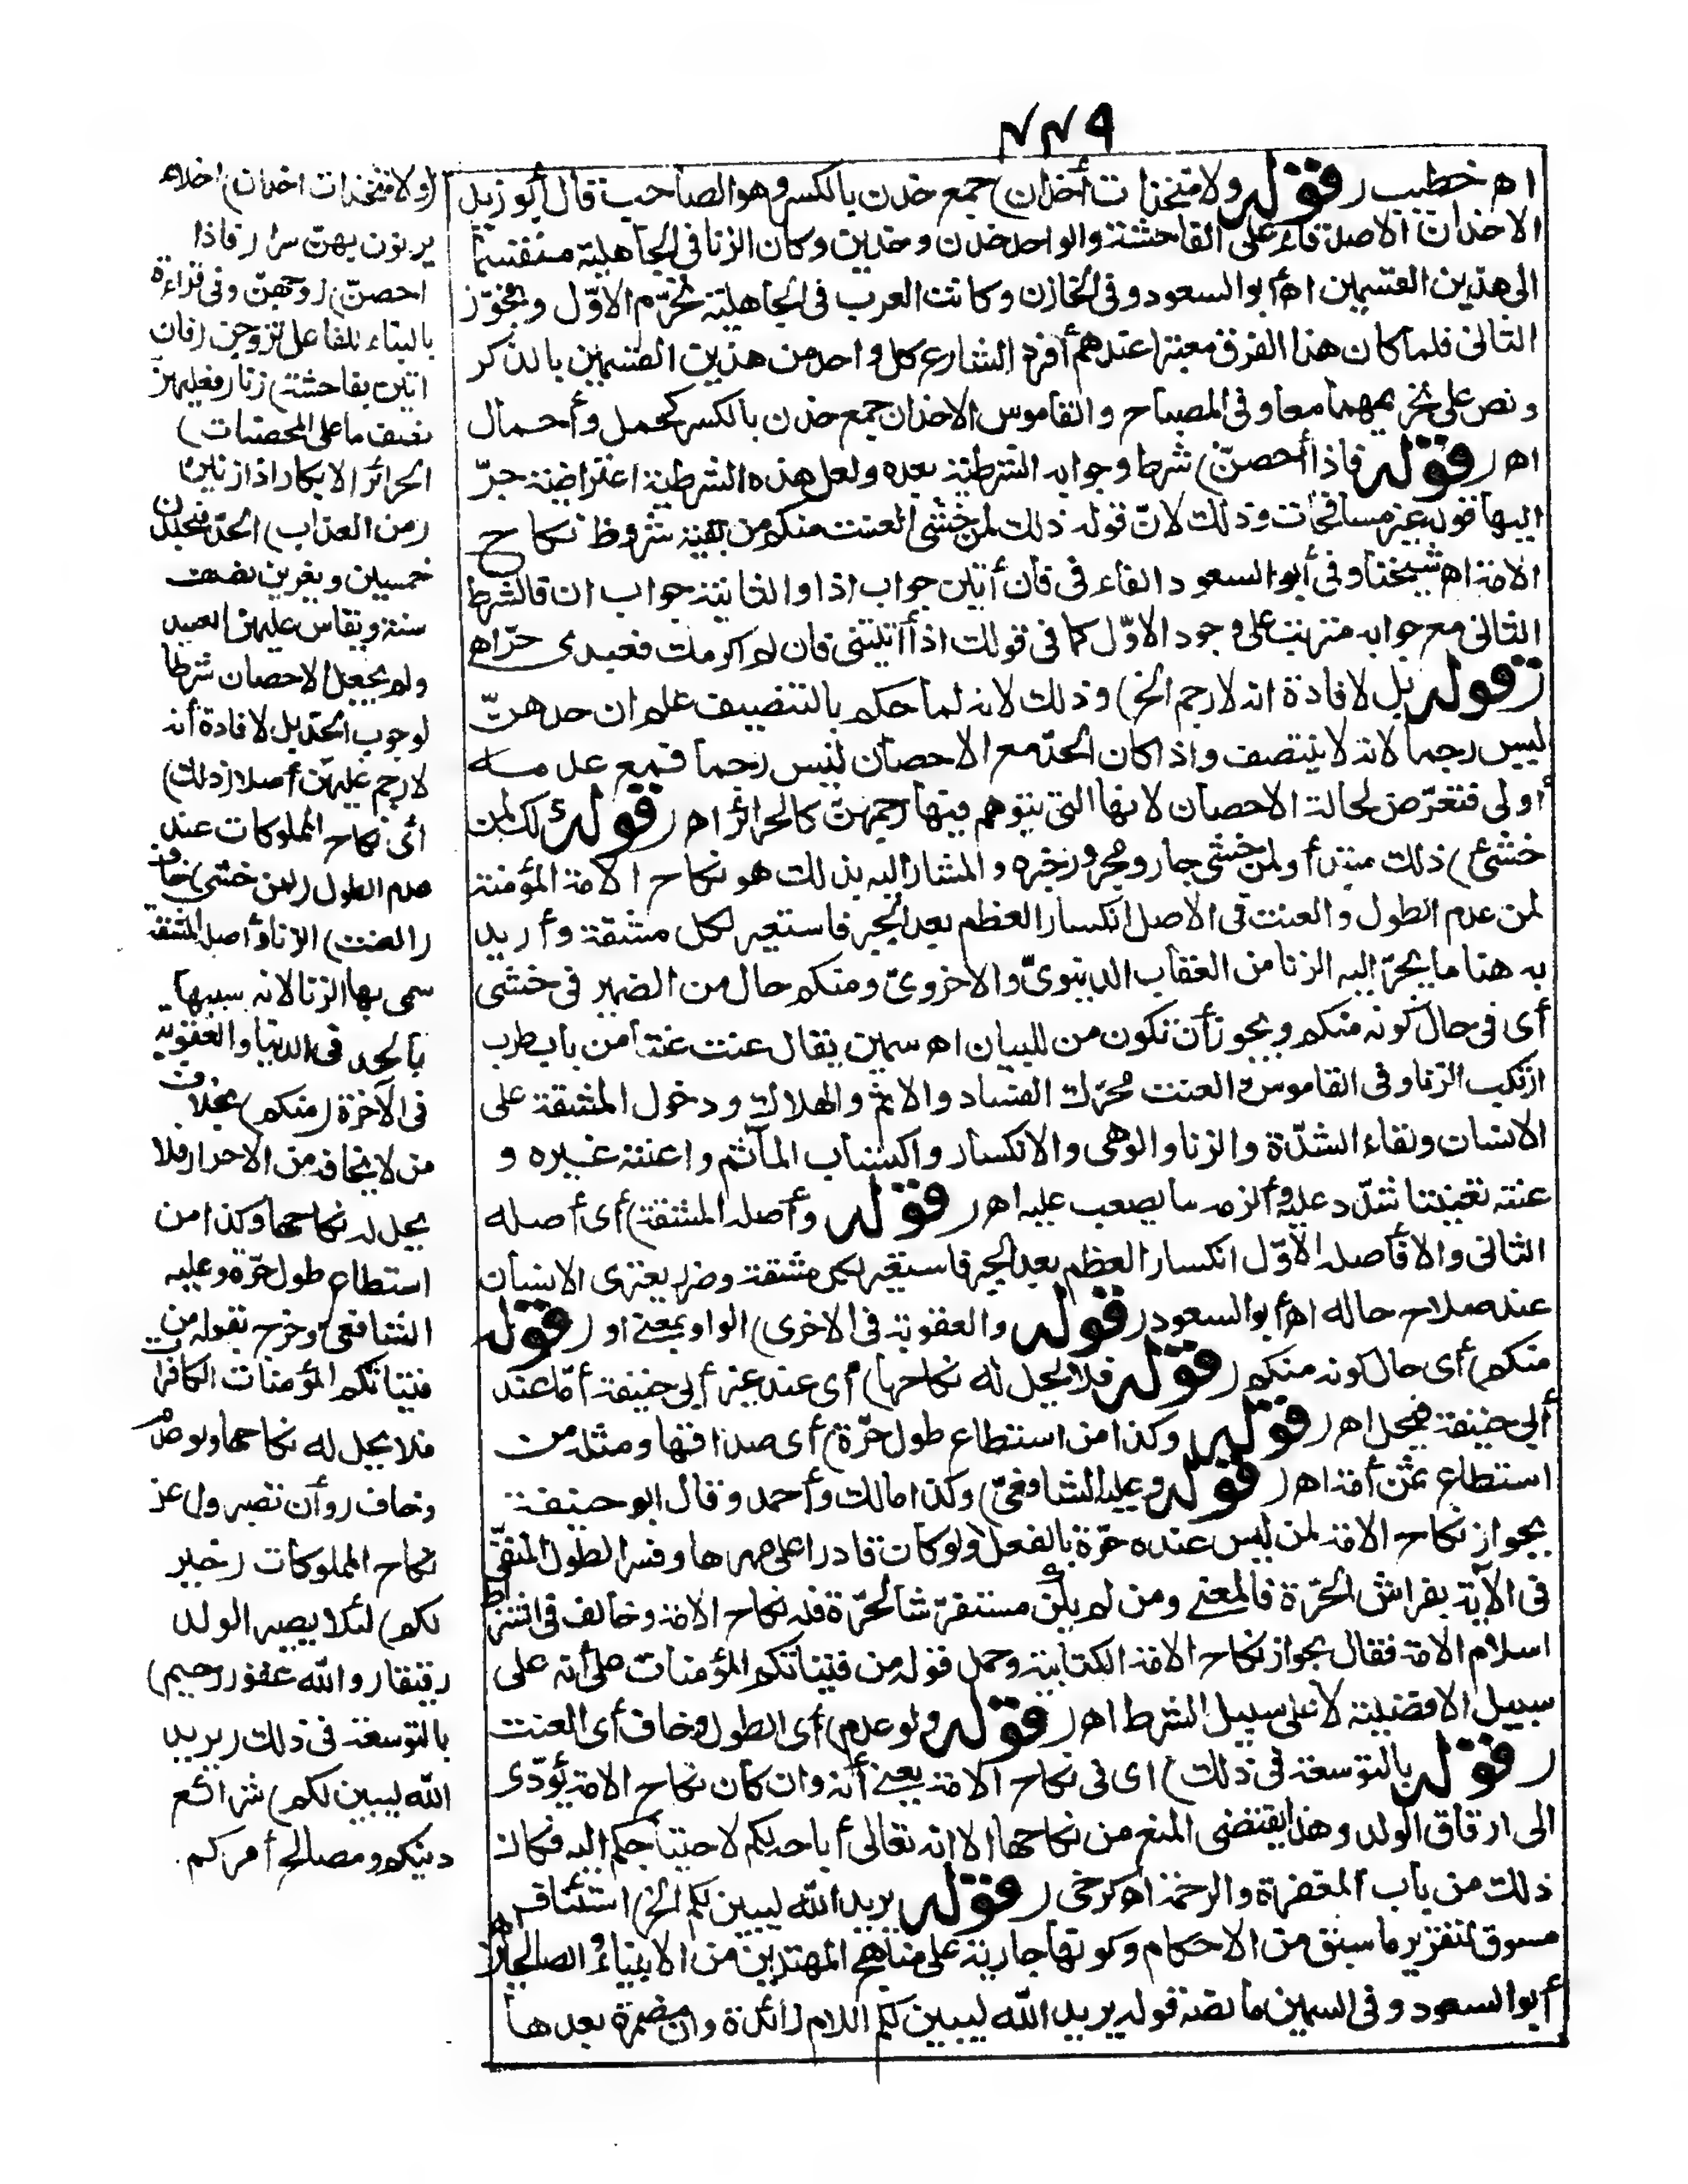 ٤٤٩
اه خطيب (قوله ولا متخذات أخدان) جمع خدن بالكسر وهو الصاحب قال أبو زيد
الاخدان الاصدقاء على الفاحشة والواحد خدن وخدين وكان الزنا في الجاهلية منقسما
الى هذين القسمين اه أبو السعود وفي الخازن وكانت العرب في الجاهلية تحرّم الاوّل وتجوّز
الثاني فلما كان هذا الفرق معتبرا عندهم أفرد الشارع كل واحد من هذين القسمين بالذكر
ونص على تحريمهما معا وفي المصباح والقاموس الاخدان جمع خدن بالكسر كحمل وأحمال
اه (قوله فاذا أحصنّ) شرط وجوابه الشرطية بعده ولعل هذه الشرطية اعتراضية جرّ
اليها قوله غير مسافحات وذلك لانّ قوله ذلك لمن خشى العنت منكم من بقية شروط نكاح
الامة اه شيخنا وفي أبو السعود الفاء في فان أتين جواب اذا والثانية جواب ان فالشرط
الثاني مع جوابه مترتب على وجود الاوّل كما في قولك اذا أتيتني فان لم اكرمك فعبدى حرّ اه
(قوله بل لافادة انه لا رجم الخ) وذلك لانه لما حكم بالتنصيف علم ان حدهنّ
ليس رجما لانه لا يتنصف واذا كان الحدّ مع الاحصان ليس رجما فمع عدمه
أولى فتعرّض لحالة الاحصان لانها التي يتوهم فيها رجمهنّ كالحرائر اه (قوله ذلك لمن
خشى) ذلك مبتدأ ولمن خشى جار ومجرور خبره والمشار اليه بذلك هو نكاح الامة المؤمنة
لمن عدم الطول والعنت في الاصل انكسار العظم بعد الجبر فاستعير لكل مشقة وأريد
به هنا ما يجرّ اليه الزنا من العقاب الدنيوىّ والاخروىّ ومنكم حال من الضمير في خشى
أى في حال كونه منكم ويجوز أن تكون من للبيان اه سمين يقال عنت عنتا من باب طرب
ارتكب الزنا وفي القاموس العنت محرّك الفساد والاثم والهلاك ودخول المشقة على
الانسان ولقاء الشدّة والزنا والوهى والانكسار واكتساب المآثم واعنته غيره و
عنته تعنيتا شدّد عليه وألزمه ما يصعب عليه اه (قوله وأصله المشقة) أى أصله
الثاني والا فأصله الاوّل انكسار العظم بعد الجبر فاستعير لكل مشقة وضرر يعترى الانسان
عند صلاح حاله اه أبو السعود (قوله والعقوبة في الاخرى) الواو بمعنى او (قوله
منكم) أى حال كونه منكم (قوله فلا يحل له نكاحها) أى عند غير أبي حنيفة أمّا عند
أبي حنيفة فيحل اه (قوله وكذا من استطاع طول حرّة) أى صداقها ومثله من
استطاع ثمن أمة اه (قوله وعليه الشافعىّ) وكذا مالك وأحمد وقال ابو حنيفة
بجواز نكاح الامة لمن ليس عنده حرّة بالفعل ولو كان قادرا على مهرها وفسر الطول المنفىّ
في الآية بفراش الحرّة فالمعنى ومن لم يكن مستفرشا لحرّة فله نكاح الامة وخالف في اشتراط
اسلام الامة فقال بجواز نكاح الامة الكتابية وحمل قوله من فتياتكم المؤمنات على أنه على
سبيل الافضلية لا على سبيل الشرط اه (قوله ولو عدم) أى الطول وخاف أى العنت
(قوله بالتوسعة في ذلك) اى في نكاح الامة يعنى أنه وان كان نكاح الامة يؤدّى
الى ارقاق الولد وهذا يقتضى المنع من نكاحها الا انه تعالى أباحه لكم لاحتياجكم اليه فكان
ذلك من باب المغفرة والرحمة اه كرخى (قوله يريد الله ليبين لكم الخ) استئناف
مسوق لتقرير ما سبق من الاحكام وكونها جارية على مناهج المهتدين من الانبياء والصالحين اه
أبو السعود وفي السمين ما نصه قوله يريد الله ليبين لكم اللام زائدة وان مضمرة بعدها
(ولا متخذات اخدان) اخلاء
يزنون بهنّ سرا (فاذا
احصنّ) زوجهنّ وفي قراءة
بالبناء للفاعل تزوجن (فان
اتين بفاحشة) زنا (فعليهنّ
نصف ما على المحصنات)
الحرائر الابكار اذا زنين
(من العذاب) الحدّ فيجلدن
خمسين ويغربن نصف
سنة ويقاس عليهن العبيد
ولم يجعل الاحصان شرطا
لوجوب الحدّ بل لافادة أنه
لا رجم عليهنّ أصلا (ذلك)
أى نكاح المملوكات عند
عدم الطول (لمن خشى) خاف
(العنت) الزنا وأصله المشقة
سمى بها الزنا لانه سببها
بالحد في الدنيا والعقوبة
في الآخرة (منكم) بخلاف
من لا يخافه من الاحرار فلا
يحل له نكاحها وكذا من
استطاع طول حرّة وعليه
الشافعىّ وخرج بقوله من
فتياتكم المؤمنات الكافرات
فلا يحل له نكاحها ولو عدم
وخاف (وأن تصبروا) عن
نكاح المملوكات (خير
لكم) لئلا يصير الولد
رقيقا (والله غفور رحيم)
بالتوسعة في ذلك (يريد
الله ليبين لكم) شرائع
دينكم ومصالح أمركم.